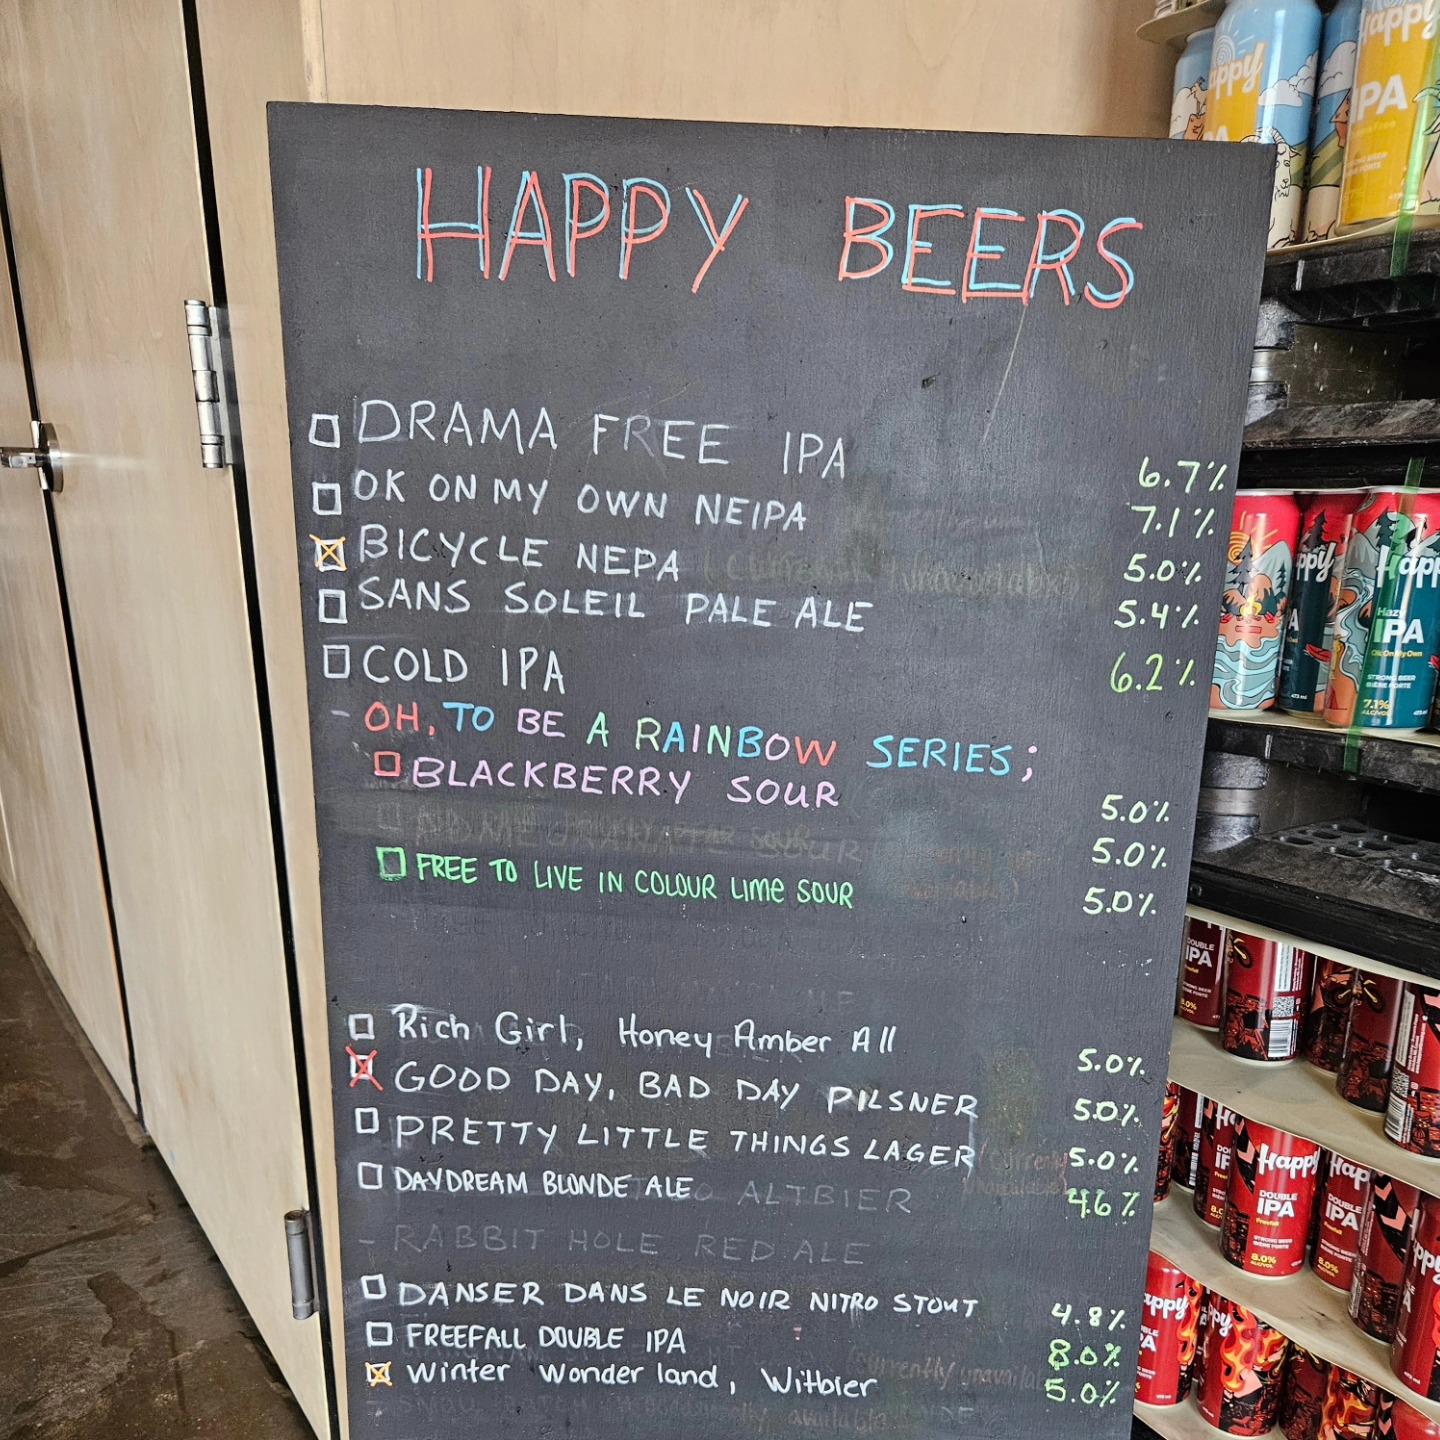 HAPPY BEERS
DRAMA FREE IPA 6.7%
OK ON MY OWN NEIPA 7.1%
BICYCLE NEPA 5.0%
SANS SOLEIL PALE ALE 5.4%
COLD IPA 6.2%
- OH, TO BE A RAINBOW SERIES;
BLACKBERRY SOUR 5.0%
5.0%
FREE TO LIVE IN COLOUR LIME SOUR 5.0%
Rich Girl, Honey Amber All 5.0%
GOOD DAY, BAD DAY PILSNER 5.0%
PRETTY LITTLE THINGS LAGER 5.0%
DAYDREAM BLONDE ALE ALTBIER 4.6%
- RABBIT HOLE RED ALE
DANSER DANS LE NOIR NITRO STOUT 4.8%
FREEFALL DOUBLE IPA 8.0%
Winter Wonder land, Witbier 5.0%
Happy
IPA
Happy
Hazy
IPA
Ok On My Own
STRONG BEER
BIÈRE FORTE
7.1%
ALC/VOL
473 ml
DOUBLE
IPA
8.0%
Happy
DOUBLE
IPA
Freefall
STRONG BEER
BIÈRE FORTE
8.0%
ALC/VOL